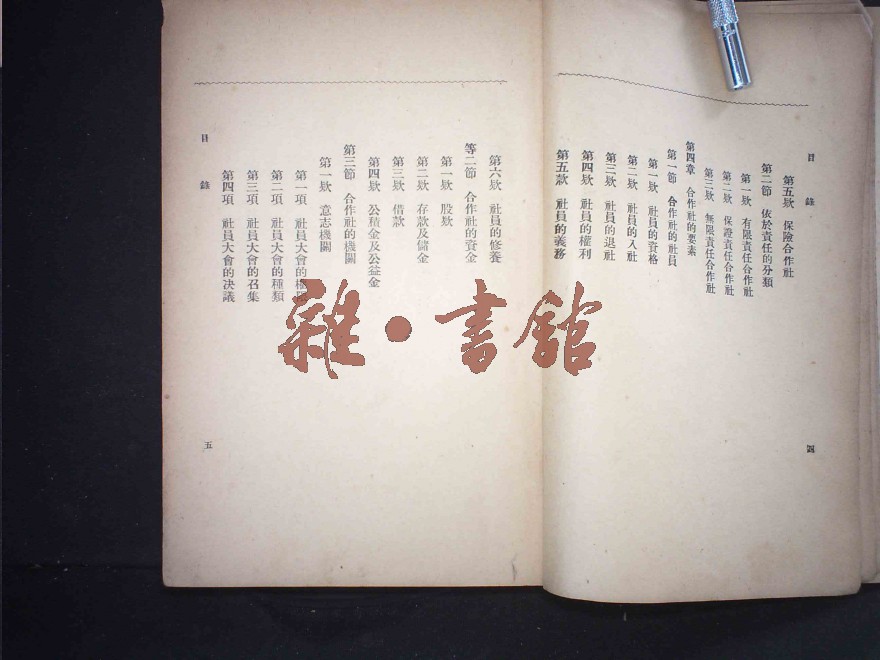 目錄
第五欵 保險合作社
第二節 依於責任的分類
第一欵 有限責任合作社
第二欵 保證責任合作社
第三欵 無限責任合作社
第四章 合作社的要素
第一節 合作社的社員
第一欵 社員的資格
第二欵 社員的入社
第三欵 社員的退社
第四欵 社員的權利
第五款 社員的義務
四
目錄
第六欵 社員的修養
等二節 合作社的資金
第一欵 股欵
第二欵 存款及儲金
第三欵 借款
第四欵 公積金及公益金
第三節 合作社的機關
第一欵 意志機關
第一項 社員大會的權限
第二項 社員大會的種類
第三項 社員大會的召集
第四項 社員大會的決議
五
雜·書館